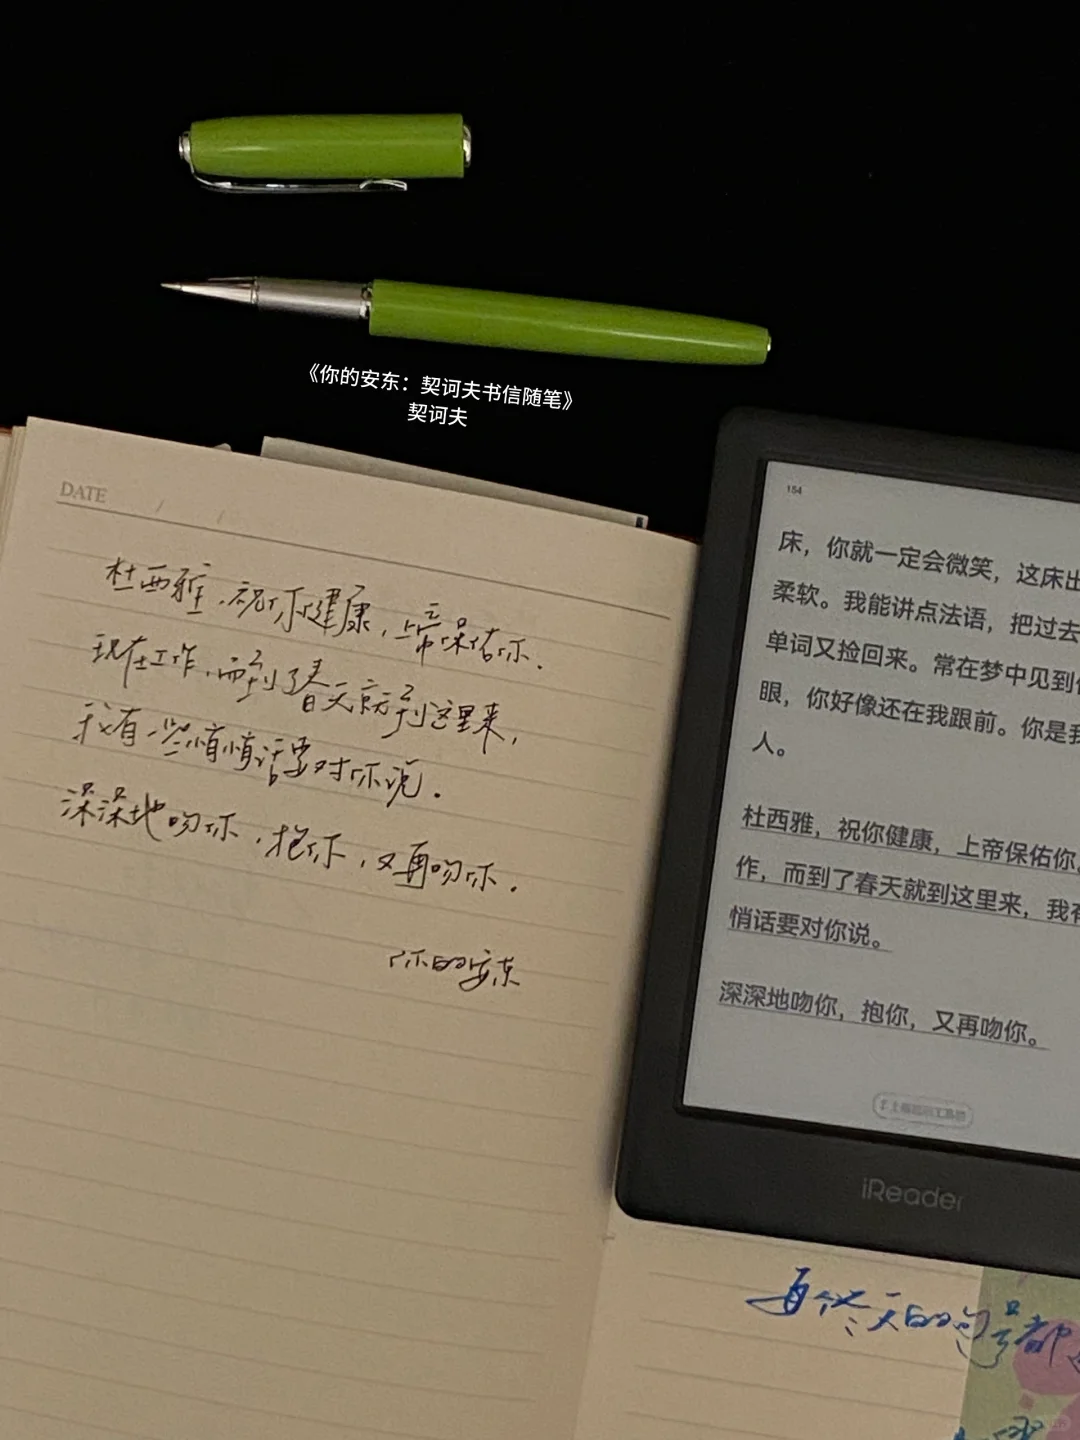 《你的安东：契诃夫书信随笔》
契诃夫
DATE / /
杜西雅，祝你健康，上帝保佑你．
现在工作，而到了春天就到这里来，
我有一些悄悄话要对你说．
深深地吻你，抱你，又再吻你．
你的安东
154
床，你就一定会微笑，这床出
柔软。我能讲点法语，把过去
单词又捡回来。常在梦中见到你
眼，你好像还在我跟前。你是我
人。
杜西雅，祝你健康，上帝保佑你。
作，而到了春天就到这里来，我有
悄话要对你说。
深深地吻你，抱你，又再吻你。
iReader
每个冬天的句号都